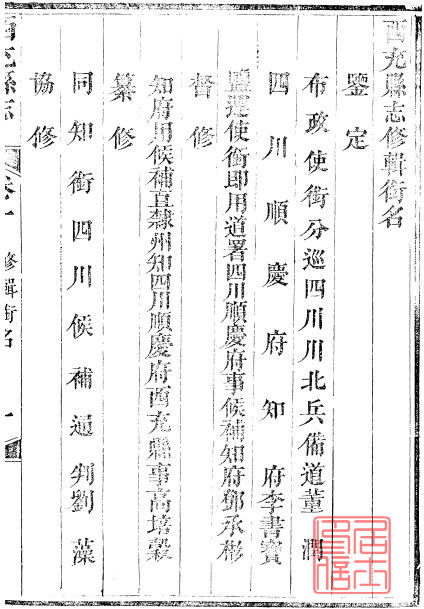 西充縣志修輯銜名
鑒定
布政使銜分巡四川川北兵備道董潤
四川順慶府知府李書寶
鹽運使銜即用道署四川順慶府事候補知府鄧承彬
督修
知府用候補直隸州知四川順慶府西充縣事高培穀
纂修
同知銜四川候補通判劉藻
協修
西充縣志
卷一
修輯銜名
一
居士